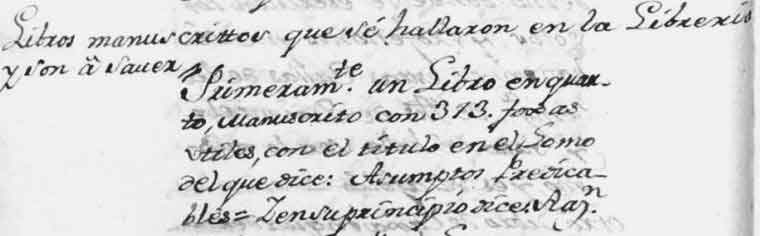 Libros manuscrittos que sè hallaron en la Libreria
y son â saver,
Primeram.te un Libro en quar-
to, Manuscrito con 313. foxas
vtiles, con el titulo en el Lomo
del que dice: Asumptos Predica-
bles = Y en su principio dice: Raz.n